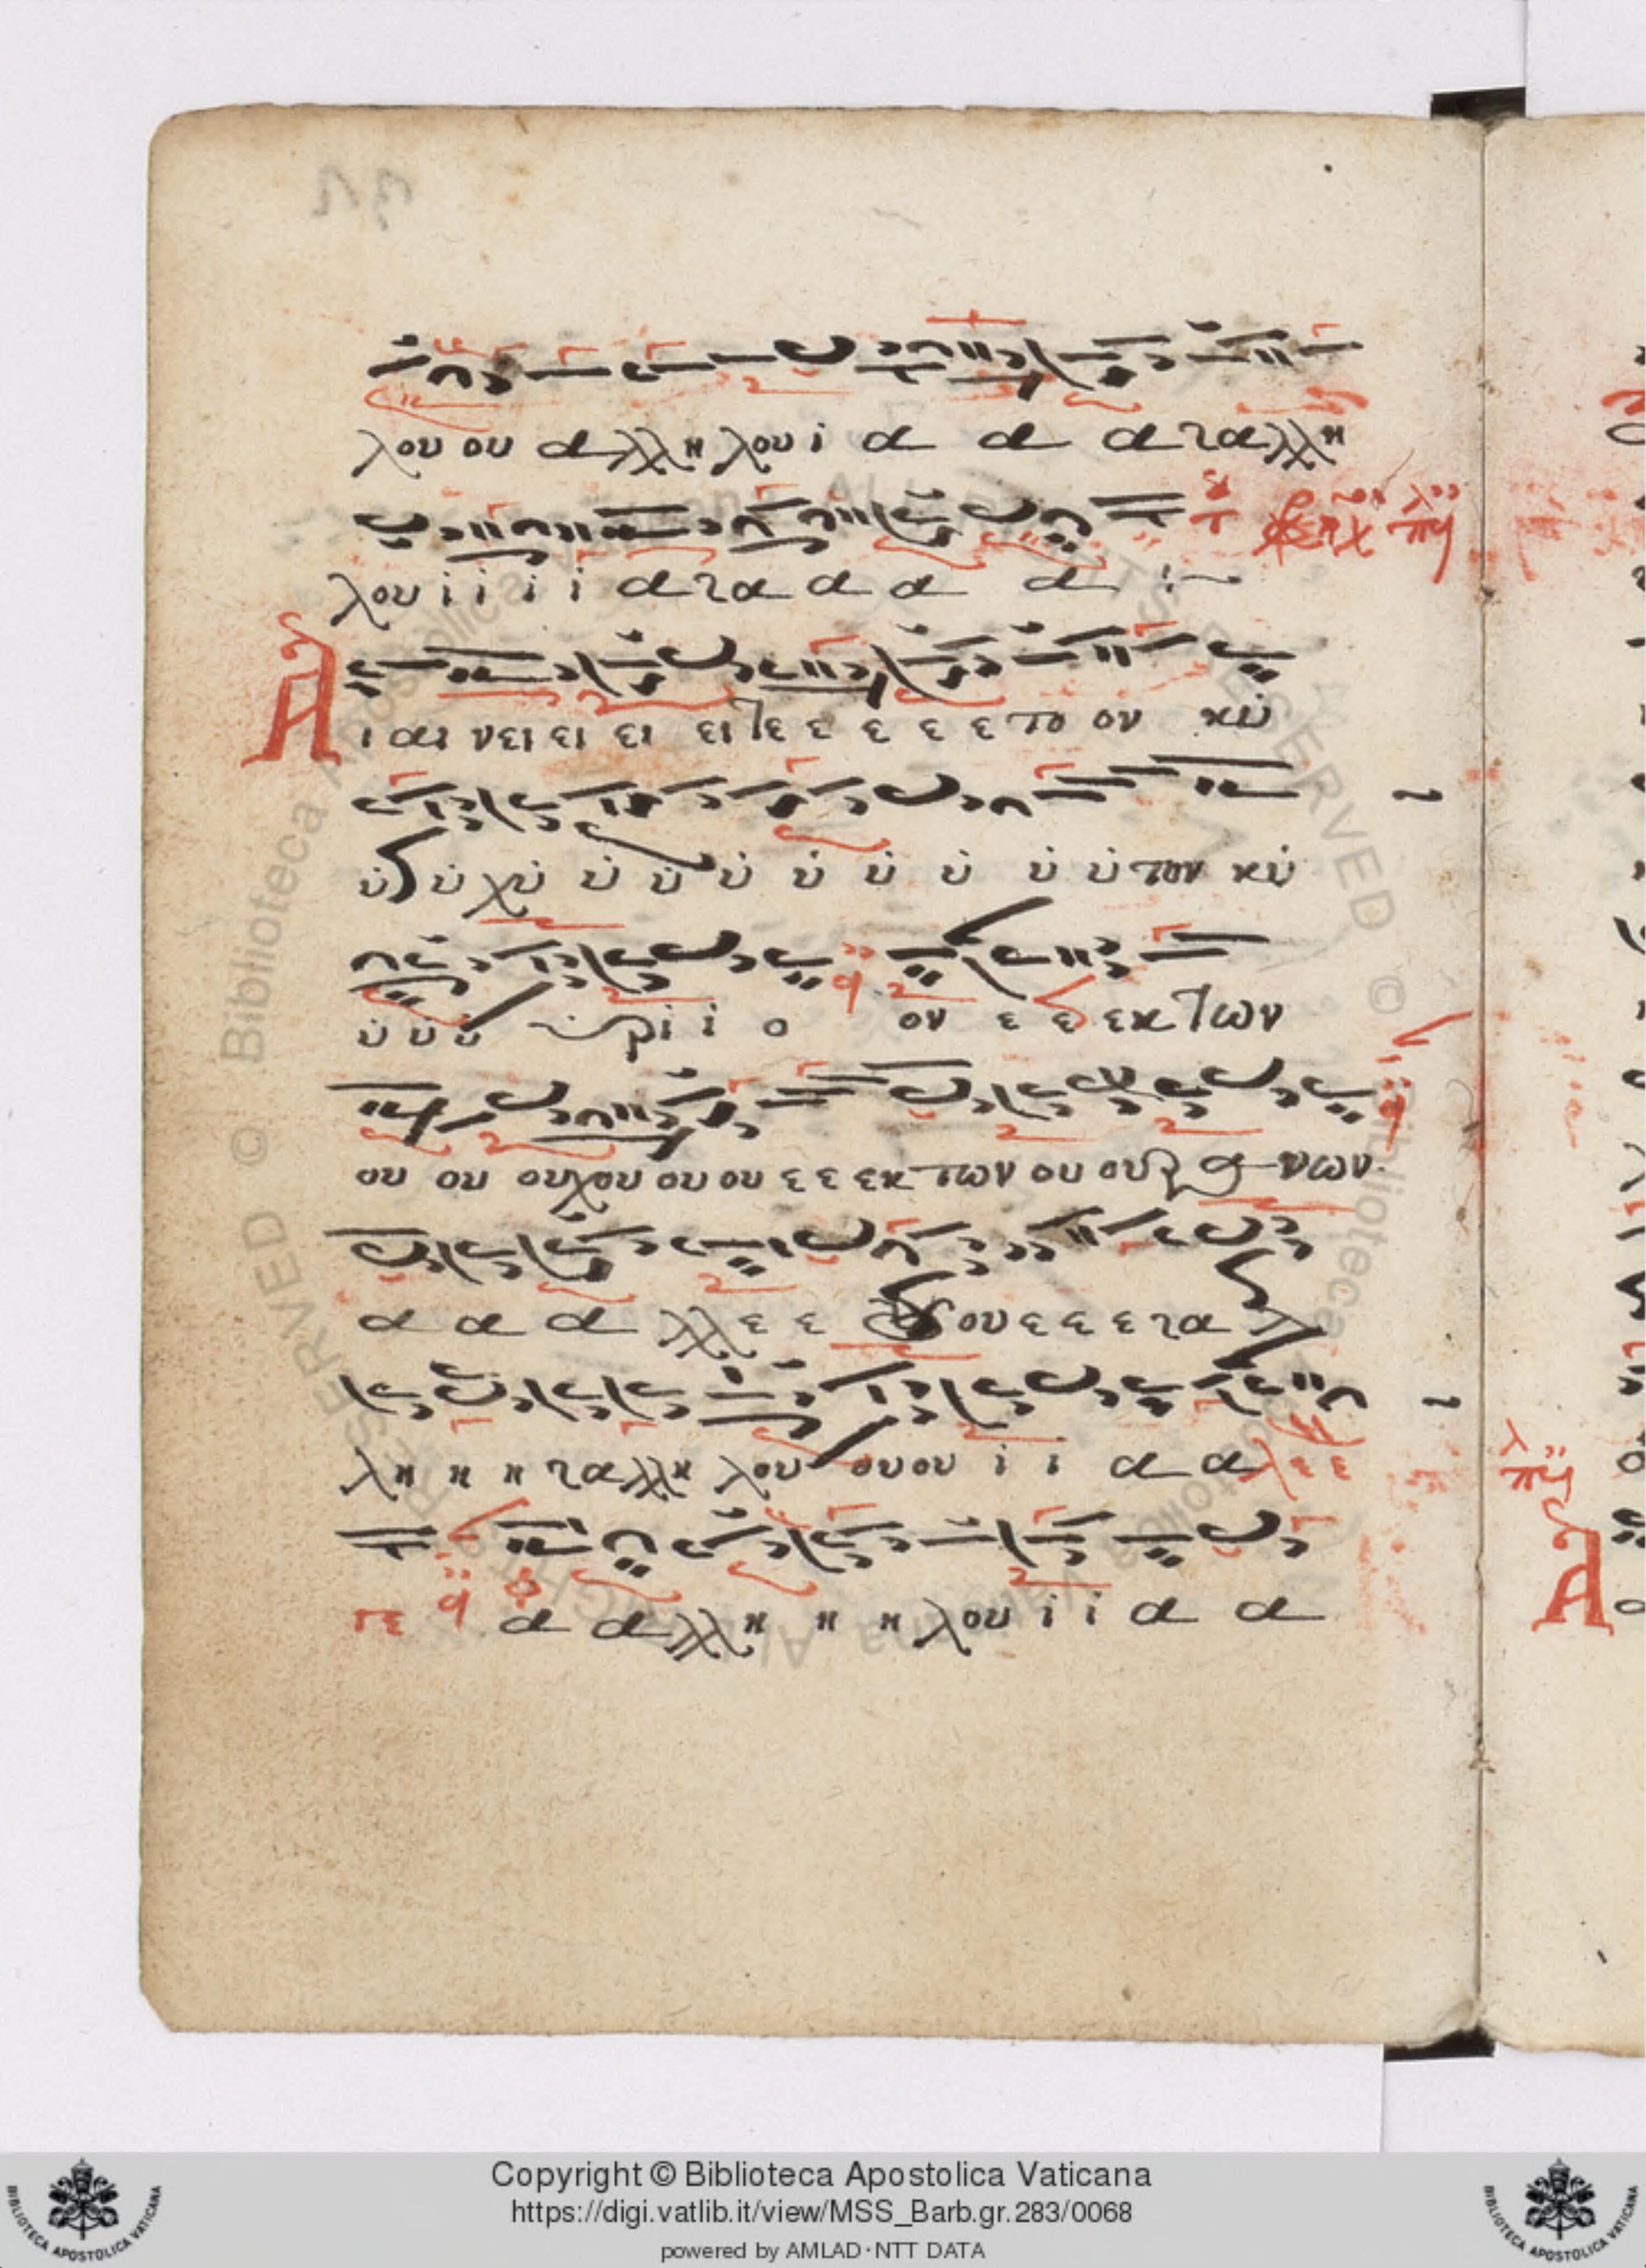 λου ου α λλη λου ι α α α τα λλη
λου ι ι ι ι α τα α α α
Α ι αι νει ει ει ει τε ε ε ε ε το ον κυ
υ υ χυ υ υ υ υ υ υ υ υ τον κυ
υ υ υ υ ρι ι ο ον ε ε εκ των
ου ου ου χου ου ου ε ε εκ των ου ου ρα νων
α α α λλε ε ου ε ε ε τα
λη η η τα λλη λου ου ου ι ι α α λε ε
γε α α λλη η η λου ι ι α α
Copyright © Biblioteca Apostolica Vaticana
https://digi.vatlib.it/view/MSS_Barb.gr.283/0068
powered by AMLAD·NTT DATA